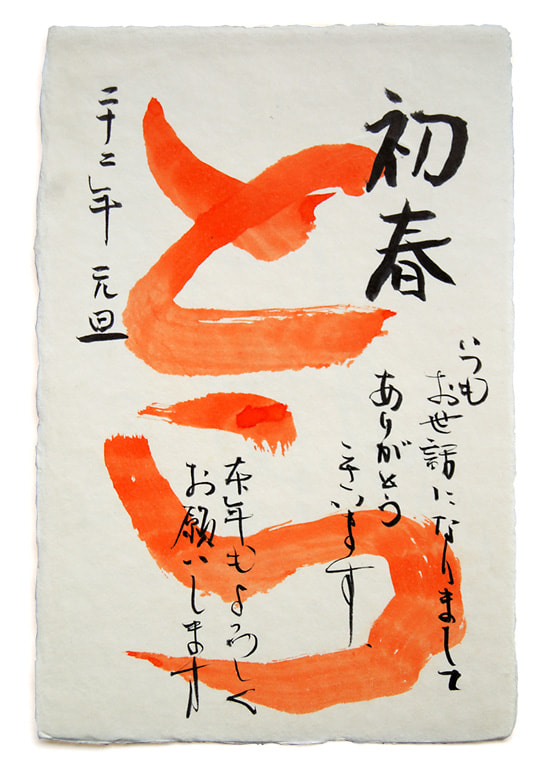 初春
いつも
お世話になりまして
ありがとう
ございます、
本年もよろしく
お願いします
二十二年 元旦
とら